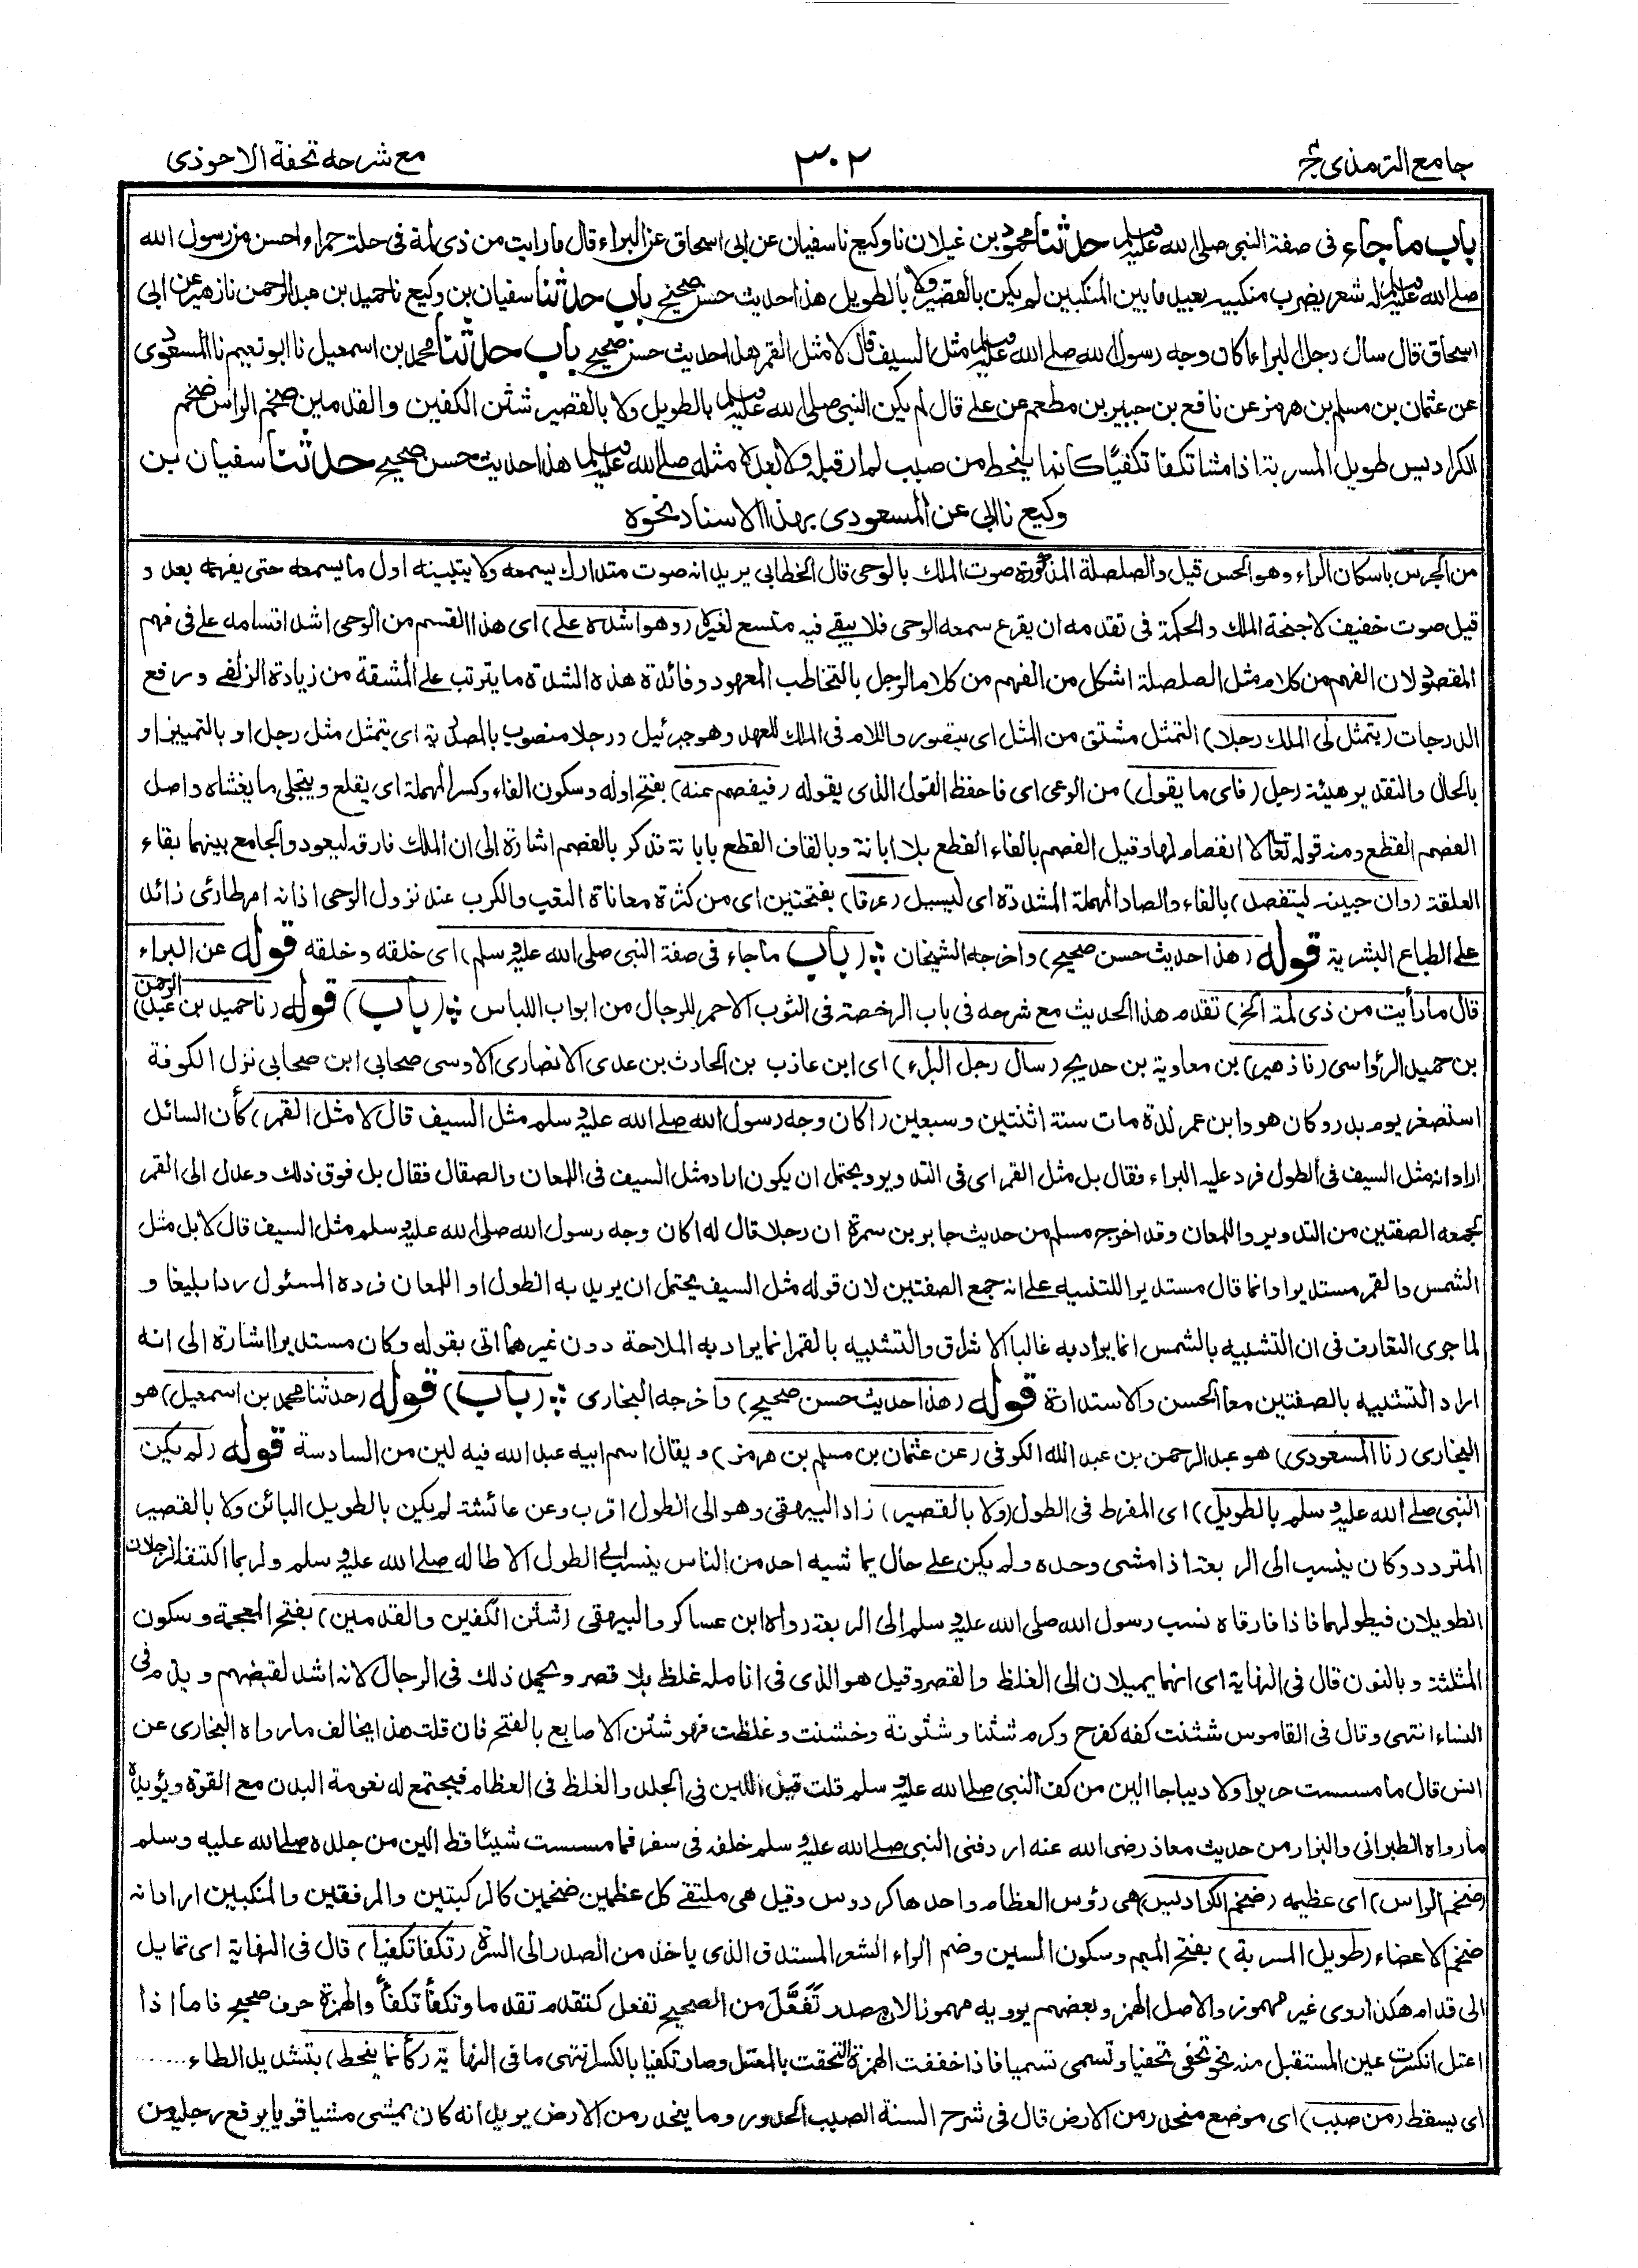 جامع الترمذی ج٤
٣٠٢
مع شرحه تحفة الاحوذی
باب ما جاء فی صفة النبی صلی الله علیه وسلم حدثنا محمود بن غیلان نا وکیع نا سفیان عن ابی اسحاق عن البراء قال ما رایت من ذی لمة فی حلة حمراء احسن من رسول الله
صلی الله علیه وسلم له شعر یضرب منکبیه بعید ما بین المنکبین لم یکن بالقصیر ولا بالطویل هذا حدیث حسن صحیح باب حدثنا سفیان بن وکیع نا حمید بن عبد الرحمن نا زهیر عن ابی
اسحاق قال سأل رجل البراء اکان وجه رسول الله صلی الله علیه وسلم مثل السیف قال لا مثل القمر هذا حدیث حسن صحیح باب حدثنا محمد بن اسمعیل نا ابو نعیم نا المسعودی
عن عثمان بن مسلم بن هرمز عن نافع بن جبیر بن مطعم عن علی قال لم یکن النبی صلی الله علیه وسلم بالطویل ولا بالقصیر شثن الکفین والقدمین ضخم الراس ضخم
الکرادیس طویل المسربة اذا مشا تکفا تکفیًا کانما ینحط من صبب لم ار قبله ولا بعده مثله صلی الله علیه وسلم هذا حدیث حسن صحیح حدثنا سفیان بن
وکیع نا ابی عن المسعودی بهذا الاسناد نحوه
من الجرس باسکان الراء وهو الحس قیل والصلصلة المذکورة صوت الملک بالوحی قال الخطابی یرید انه صوت متدارک یسمعه ولا یتبینه اول ما یسمعه حتی یفهمه بعد و
قیل صوت خفیف لاجنحة الملک والحکمة فی تقدمه ان یقرع سمعه الوحی فلا یبقی فیه متسع لغیره (وهو اشده علی) ای هذا القسم من الوحی اشد اقسامه علی فی فهم
المقصود لان الفهم من کلام مثل الصلصلة اشکل من الفهم من کلام الرجل بالتخاطب المعهود وفائدة هذه الشدة ما یترتب علی المشقة من زیادة الزلفی ورفع
الدرجات (یتمثل لی الملک رجلا) التمثل مشتق من المثل ای یتصور واللام فی الملک للعهد وهو جبرئیل ورجلا منصوب بالمصدریة ای یتمثل مثل رجل او بالتمییز او
بالحال والتقدیر هیئة رجل (فاعی ما یقول) من الوعی ای فاحفظ القول الذی یقوله (فیفصم عنه) بفتح اوله وسکون الفاء وکسر المهملة ای یقلع ویتجلی ما یغشاه واصل
الفصم القطع ومنه قوله تعالی لا انفصام لها وقیل الفصم بالفاء القطع بلا ابانة وبالقاف القطع بابانة فذکر بالفصم اشارة الی ان الملک فارقه لیعود والجامع بینهما بقاء
العلقة (وان جبینه لیتفصد) بالفاء والصاد المهملة المشددة ای لیسیل (عرقا) بفتحتین ای من کثرة معاناة التعب والکرب عند نزول الوحی اذ انه امر طارئ زائد
علی الطباع البشریة قوله (هذا حدیث حسن صحیح) واخرجه الشیخان (باب ما جاء فی صفة النبی صلی الله علیه وسلم) ای خلقه وخلقه قوله عن البراء
قال ما رأیت من ذی لمة الخ) تقدم هذا الحدیث مع شرحه فی باب الرخصة فی الثوب الاحمر للرجال من ابواب اللباس (باب) قوله (نا حمید بن عبد الرحمن)
بن حمید الرؤاسی (نا زهیر) بن معاویة بن حدیج (سأل رجل البراء) ای ابن عازب بن الحارث بن عدی الانصاری الاوسی صحابی ابن صحابی نزل الکوفة
استصغر یوم بدر وکان هو وابن عمر لدة مات سنة اثنتین وسبعین (اکان وجه رسول الله صلی الله علیه وسلم مثل السیف قال لا مثل القمر) کأن السائل
اراد انه مثل السیف فی الطول فرد علیه البراء فقال بل مثل القمر ای فی التدویر ویحتمل ان یکون اراد مثل السیف فی اللمعان والصقال فقال بل فوق ذلک وعدل الی القمر
لجمعه الصفتین من التدویر واللمعان وقد اخرج مسلم من حدیث جابر بن سمرة ان رجلا قال له اکان وجه رسول الله صلی الله علیه وسلم مثل السیف قال لا بل مثل
الشمس والقمر مستدیرا وانما قال مستدیرا للتنبیه علی انه جمع الصفتین لان قوله مثل السیف یحتمل ان یرید به الطول او اللمعان فرده المسئول ردا بلیغا و
لما جری التعارف فی ان التشبیه بالشمس انما یراد به غالبا الاشراق والتشبیه بالقمر انما یراد به الملاحة دون غیرهما اتی بقوله وکان مستدیرا اشارة الی انه
اراد التشبیه بالصفتین معا الحسن والاستدارة قوله (هذا حدیث حسن صحیح) واخرجه البخاری (باب) قوله (حدثنا محمد بن اسمعیل) هو
البخاری (نا المسعودی) هو عبد الرحمن بن عبد الله الکوفی (عن عثمان بن مسلم بن هرمز) ویقال اسم ابیه عبد الله فیه لین من السادسة قوله (لم یکن
النبی صلی الله علیه وسلم بالطویل) ای المفرط فی الطول (ولا بالقصیر) زاد البیهقی وهو الی الطول اقرب وعن عائشة لم یکن بالطویل البائن ولا بالقصیر
المتردد وکان ینسب الی الربعة اذا مشی وحده ولم یکن علی حال یماشیه احد من الناس ینسب الی الطول الا طاله صلی الله علیه وسلم ولربما اکتنفه الرجلان
الطویلان فیطولهما فاذا فارقاه نسب رسول الله صلی الله علیه وسلم الی الربعة رواه ابن عساکر والبیهقی (شثن الکفین والقدمین) بفتح المعجمة وسکون
المثلثة وبالنون قال فی النهایة ای انهما یمیلان الی الغلظ والقصر وقیل هو الذی فی انامله غلظ بلا قصر ویحمد ذلک فی الرجال لانه اشد لقبضهم ویذم فی
النساء انتهی وقال فی القاموس شثنت کفه کفرح وکرم شثنا وشثونة وخشنت وغلظت فهو شثن الاصابع بالفتح فان قلت هذا یخالف ما رواه البخاری عن
انس قال ما مسست حریرا ولا دیباجا الین من کف النبی صلی الله علیه وسلم قلت قیل اللین فی الجلد والغلظ فی العظام فیجتمع له نعومة البدن مع القوة ویؤیده
ما رواه الطبرانی والبزار من حدیث معاذ رضی الله عنه اردفنی النبی صلی الله علیه وسلم خلفه فی سفر فما مسست شیئا قط الین من جلده صلی الله علیه وسلم
(ضخم الراس) ای عظیمه (ضخم الکرادیس) هی رؤس العظام واحدها کردوس وقیل هی ملتقی کل عظمین ضخمین کالرکبتین والمرفقین والمنکبین اراد انه
ضخم الاعضاء (طویل المسربة) بفتح المیم وسکون السین وضم الراء الشعر المستدق الذی یاخذ من الصدر الی السرة (تکفا تکفیا) قال فی النهایة ای تمایل
الی قدام هکذا روی غیر مهموز والاصل الهمز وبعضهم یرویه مهموزا لان مصدر تَفَعَّلَ من الصحیح تفعل کتقدم تقدما وتکفأ تکفأً والهمزة حرف صحیح فاما اذا
اعتل انکسرت عین المستقبل منه نحو تحفی تحفیا وتسمی تسمیا فاذا خففت الهمزة التحقت بالمعتل وصار تکفیا بالکسر انتهی ما فی النهایة (کأنما ینحط) بتشدید الطاء ......
ای یسقط (من صبب) ای موضع منحدر من الارض قال فی شرح السنة الصبب الحدور وما ینحدر من الارض یرید انه کان یمشی مشیا قویا یرفع رجلیه من